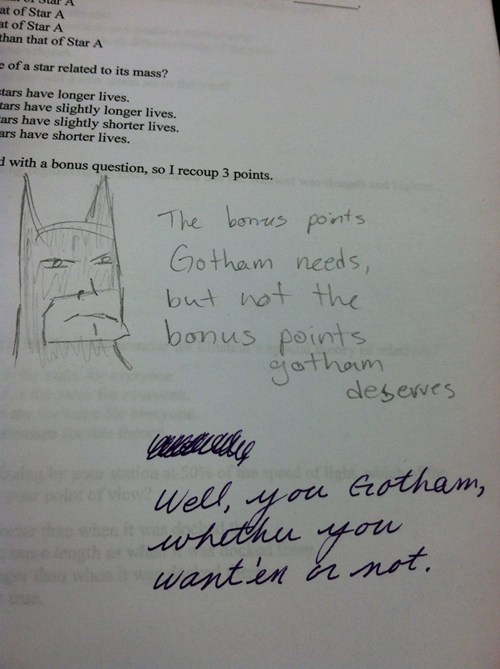 at of Star A
at of Star A
than that of Star A
of a star related to its mass?
stars have longer lives.
tars have slightly longer lives.
ars have slightly shorter lives.
ars have shorter lives.
with a bonus question, so I recoup 3 points.
The bonus points
Gotham needs,
but not the
bonus points
gotham
deserves
Well, you Gotham,
whether you
want'em or not.